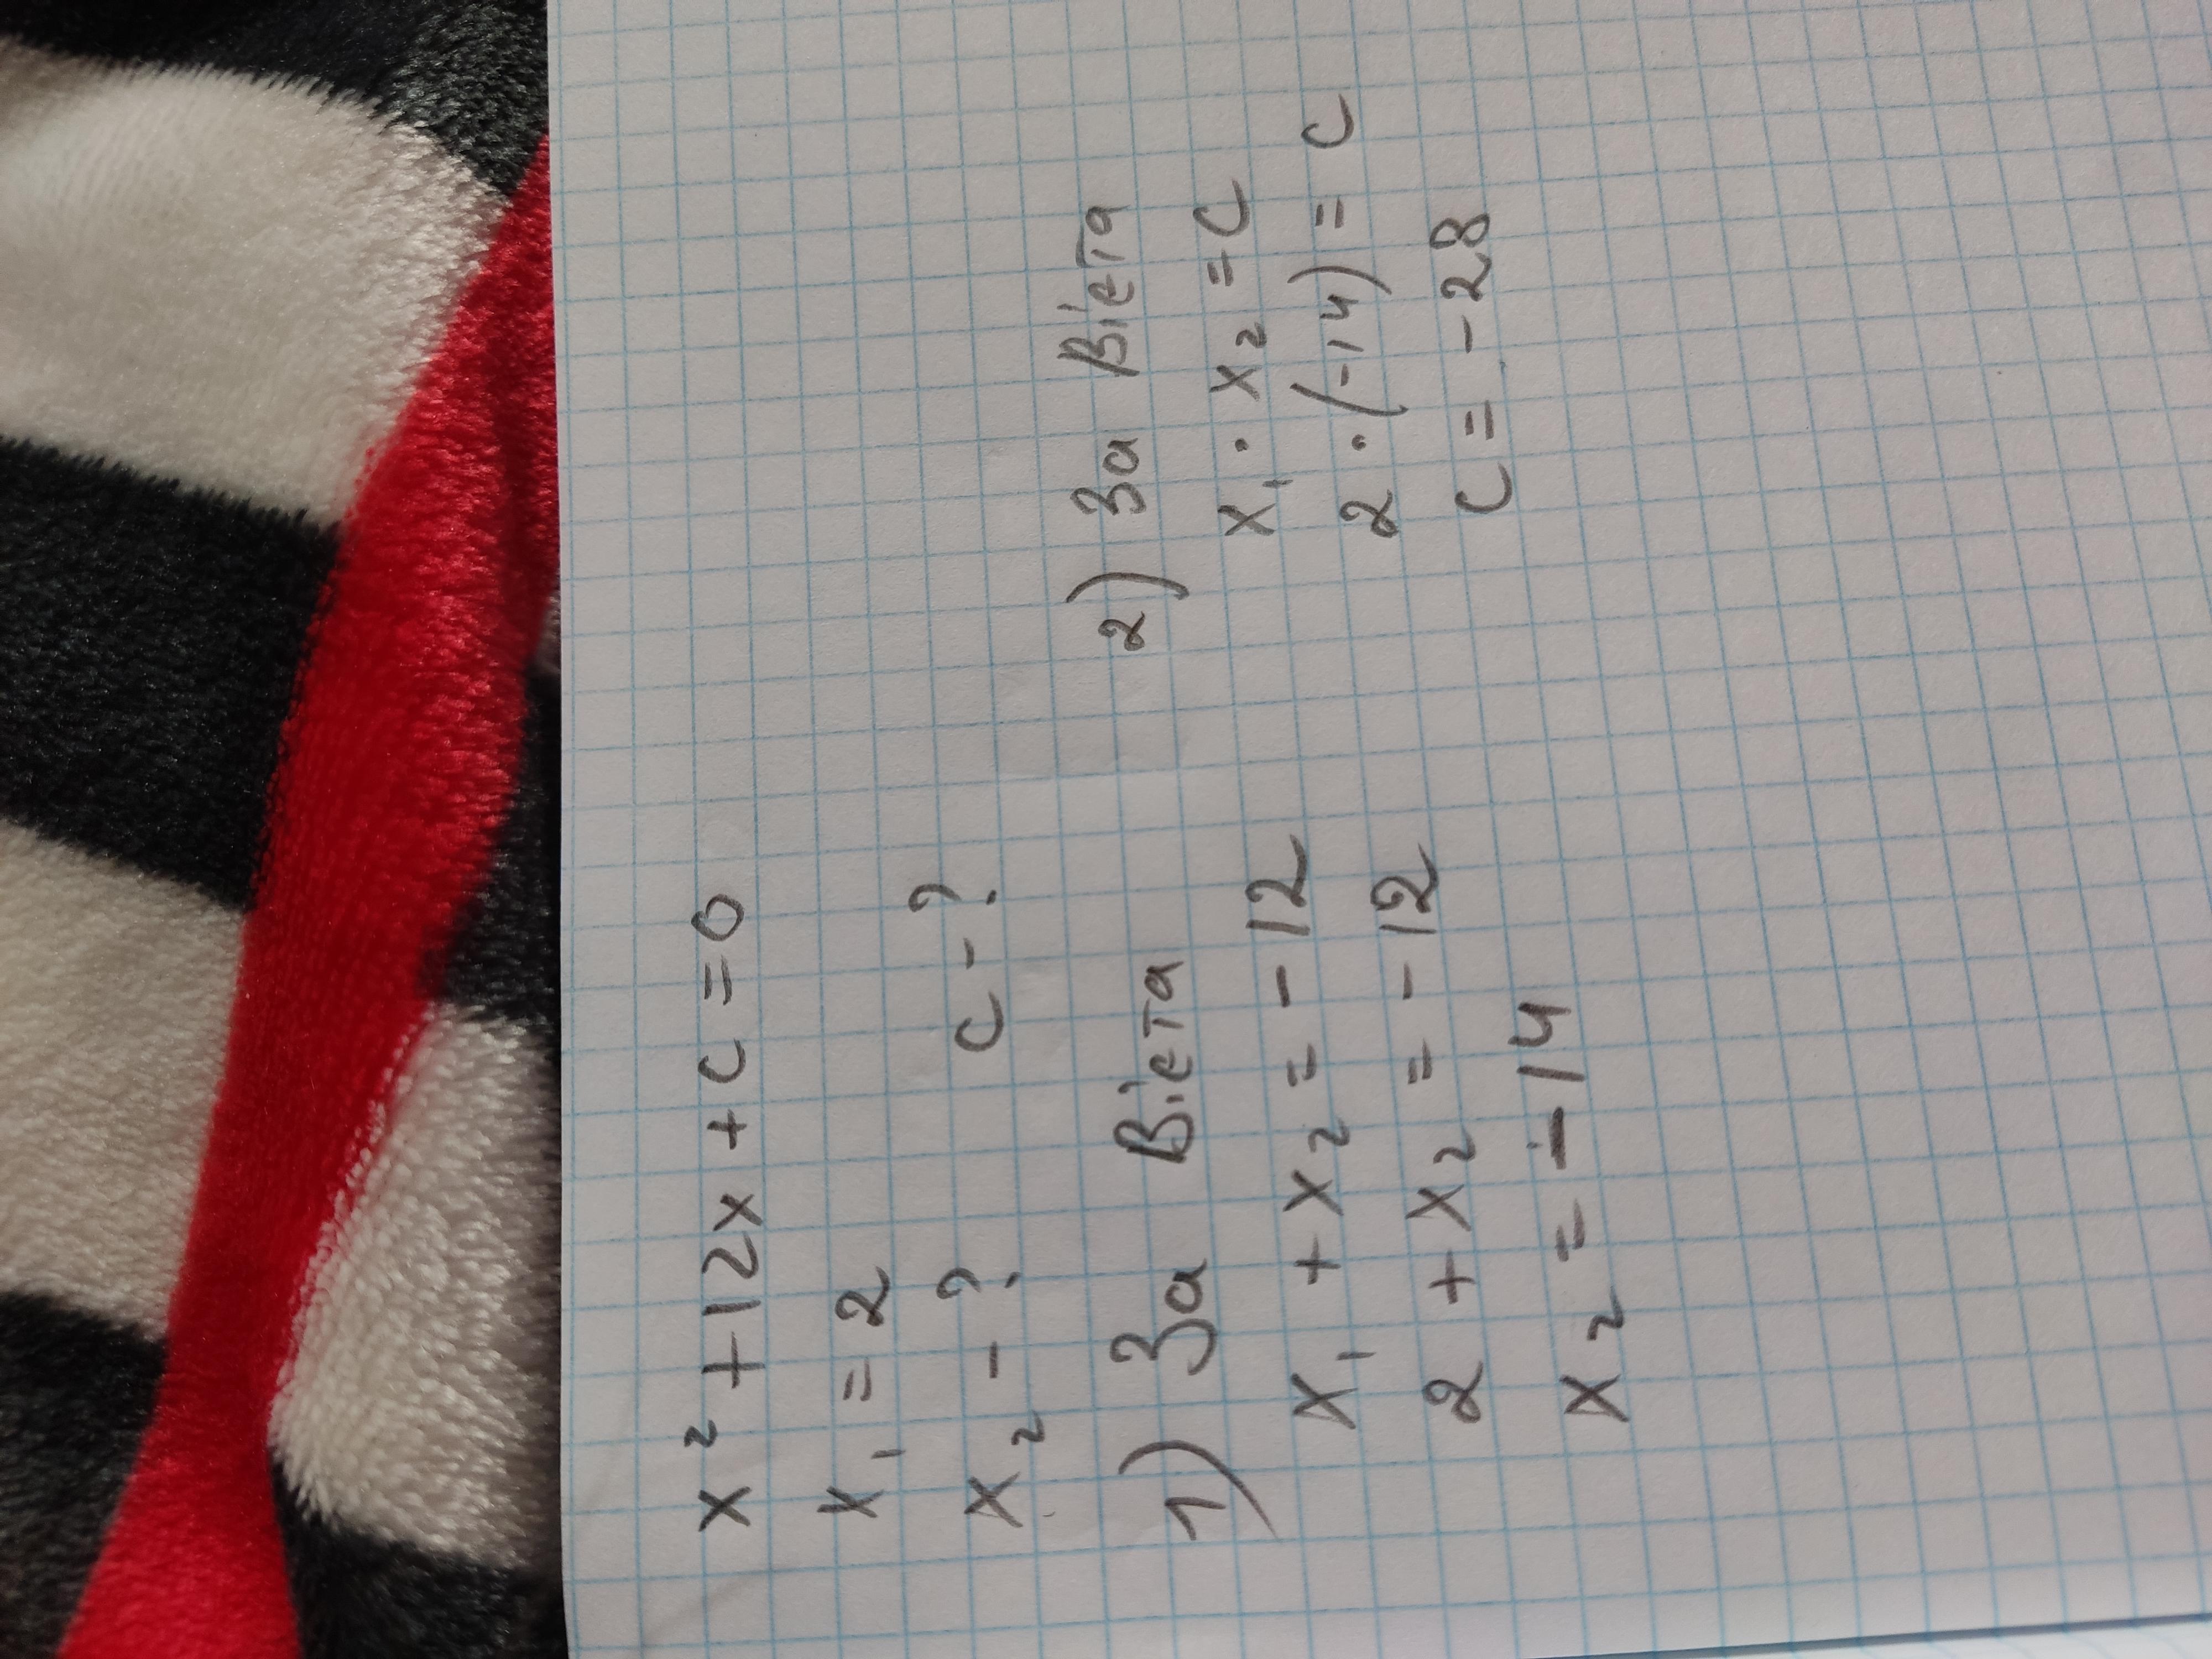 x² + 12x + c = 0
x₁ = 2
x₂ - ? c - ?
1) За Вієта
x₁ + x₂ = - 12
2 + x₂ = - 12
x₂ = - 14
2) За Вієта
x₁ · x₂ = c
2 · (-14) = c
c = - 28